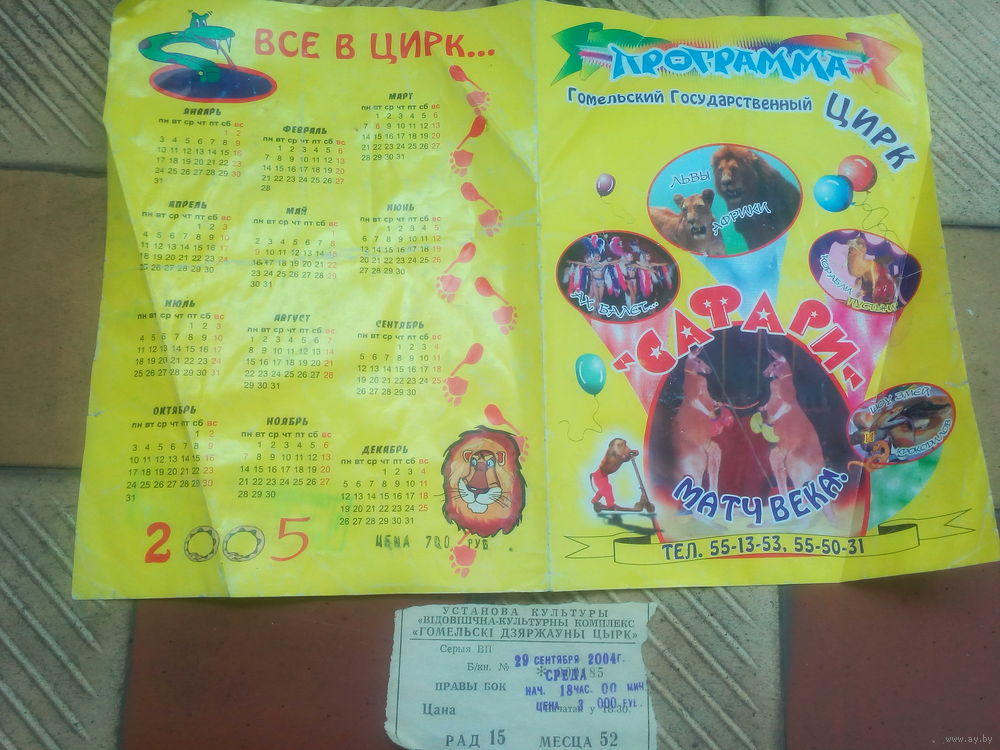 ВСЕ В ЦИРК...
ЯНВАРЬ
пн вт ср чт пт сб вс
1 2
3 4 5 6 7 8 9
10 11 12 13 14 15 16
17 18 19 20 21 22 23
24 25 26 27 28 29 30
31
ФЕВРАЛЬ
пн вт ср чт пт сб вс
1 2 3 4 5 6
7 8 9 10 11 12 13
14 15 16 17 18 19 20
21 22 23 24 25 26 27
28
МАРТ
пн вт ср чт пт сб вс
1 2 3 4 5 6
7 8 9 10 11 12 13
14 15 16 17 18 19 20
21 22 23 24 25 26 27
28 29 30 31
АПРЕЛЬ
пн вт ср чт пт сб вс
1 2 3
4 5 6 7 8 9 10
11 12 13 14 15 16 17
18 19 20 21 22 23 24
25 26 27 28 29 30
МАЙ
пн вт ср чт пт сб вс
2 3 4 5 6 7 8
9 10 11 12 13 14 15
16 17 18 19 20 21 22
23 24 25 26 27 28 29
30 31
ИЮНЬ
пн вт ср чт пт сб вс
1 2 3 4 5
6 7 8 9 10 11 12
13 14 15 16 17 18 19
20 21 22 23 24 25 26
27 28 29 30
ИЮЛЬ
пн вт ср чт пт сб вс
1 2 3
4 5 6 7 8 9 10
11 12 13 14 15 16 17
18 19 20 21 22 23 24
25 26 27 28 29 30 31
АВГУСТ
пн вт ср чт пт сб вс
1 2 3 4 5 6 7
8 9 10 11 12 13 14
15 16 17 18 19 20 21
22 23 24 25 26 27 28
29 30 31
СЕНТЯБРЬ
пн вт ср чт пт сб вс
1 2 3 4
5 6 7 8 9 10 11
12 13 14 15 16 17 18
19 20 21 22 23 24 25
26 27 28 29 30
ОКТЯБРЬ
пн вт ср чт пт сб вс
1 2
3 4 5 6 7 8 9
10 11 12 13 14 15 16
17 18 19 20 21 22 23
24 25 26 27 28 29 30
31
НОЯБРЬ
пн вт ср чт пт сб вс
1 2 3 4 5 6
7 8 9 10 11 12 13
14 15 16 17 18 19 20
21 22 23 24 25 26 27
28 29 30
ДЕКАБРЬ
пн вт ср чт пт сб вс
1 2 3 4
5 6 7 8 9 10 11
12 13 14 15 16 17 18
19 20 21 22 23 24 25
26 27 28 29 30 31
2005
ЦЕНА 700 РУБ
ПРОГРАММА
Гомельский Государственный
ЦИРК
ЛЬВЫ
АФРИКИ
АХ БАЛЕТ...
КОРАБЛИ
ПУСТЫНИ
"САФАРИ"
ШОУ ЗМЕЙ
И
КРОКОДИЛОВ
МАТЧ ВЕКА!
ТЕЛ. 55-13-53, 55-50-31
УСТАНОВА КУЛЬТУРЫ
«ВІДОВІШЧНА-КУЛЬТУРНЫ КОМПЛЕКС
«ГОМЕЛЬСКІ ДЗЯРЖАУНЫ ЦЫРК»
Серыя ВП
Б/кн. №
29 СЕНТЯБРЯ 2004г.
СРЕДА
ПРАВЫ БОК
НАЧ. 18 ЧАС. 00 МИН
Цана
ЦЕНА 3 000 РУБ.
Пачатак у 18.30.
РАД 15 МЕСЦА 52
www.ay.by